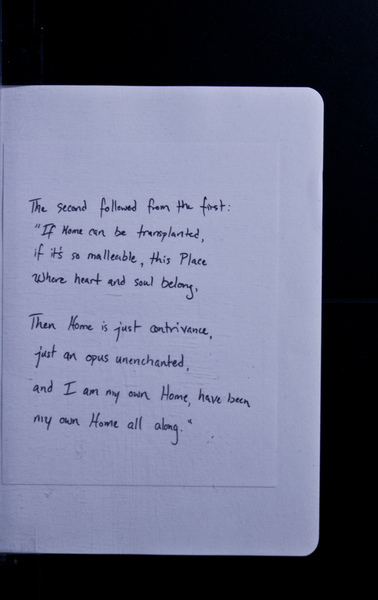 The second followed from the first:
"If Home can be transplanted,
if it's so malleable, this Place
Where heart and soul belong,
Then Home is just contrivance,
just an opus unenchanted,
and I am my own Home, have been
my own Home all along."